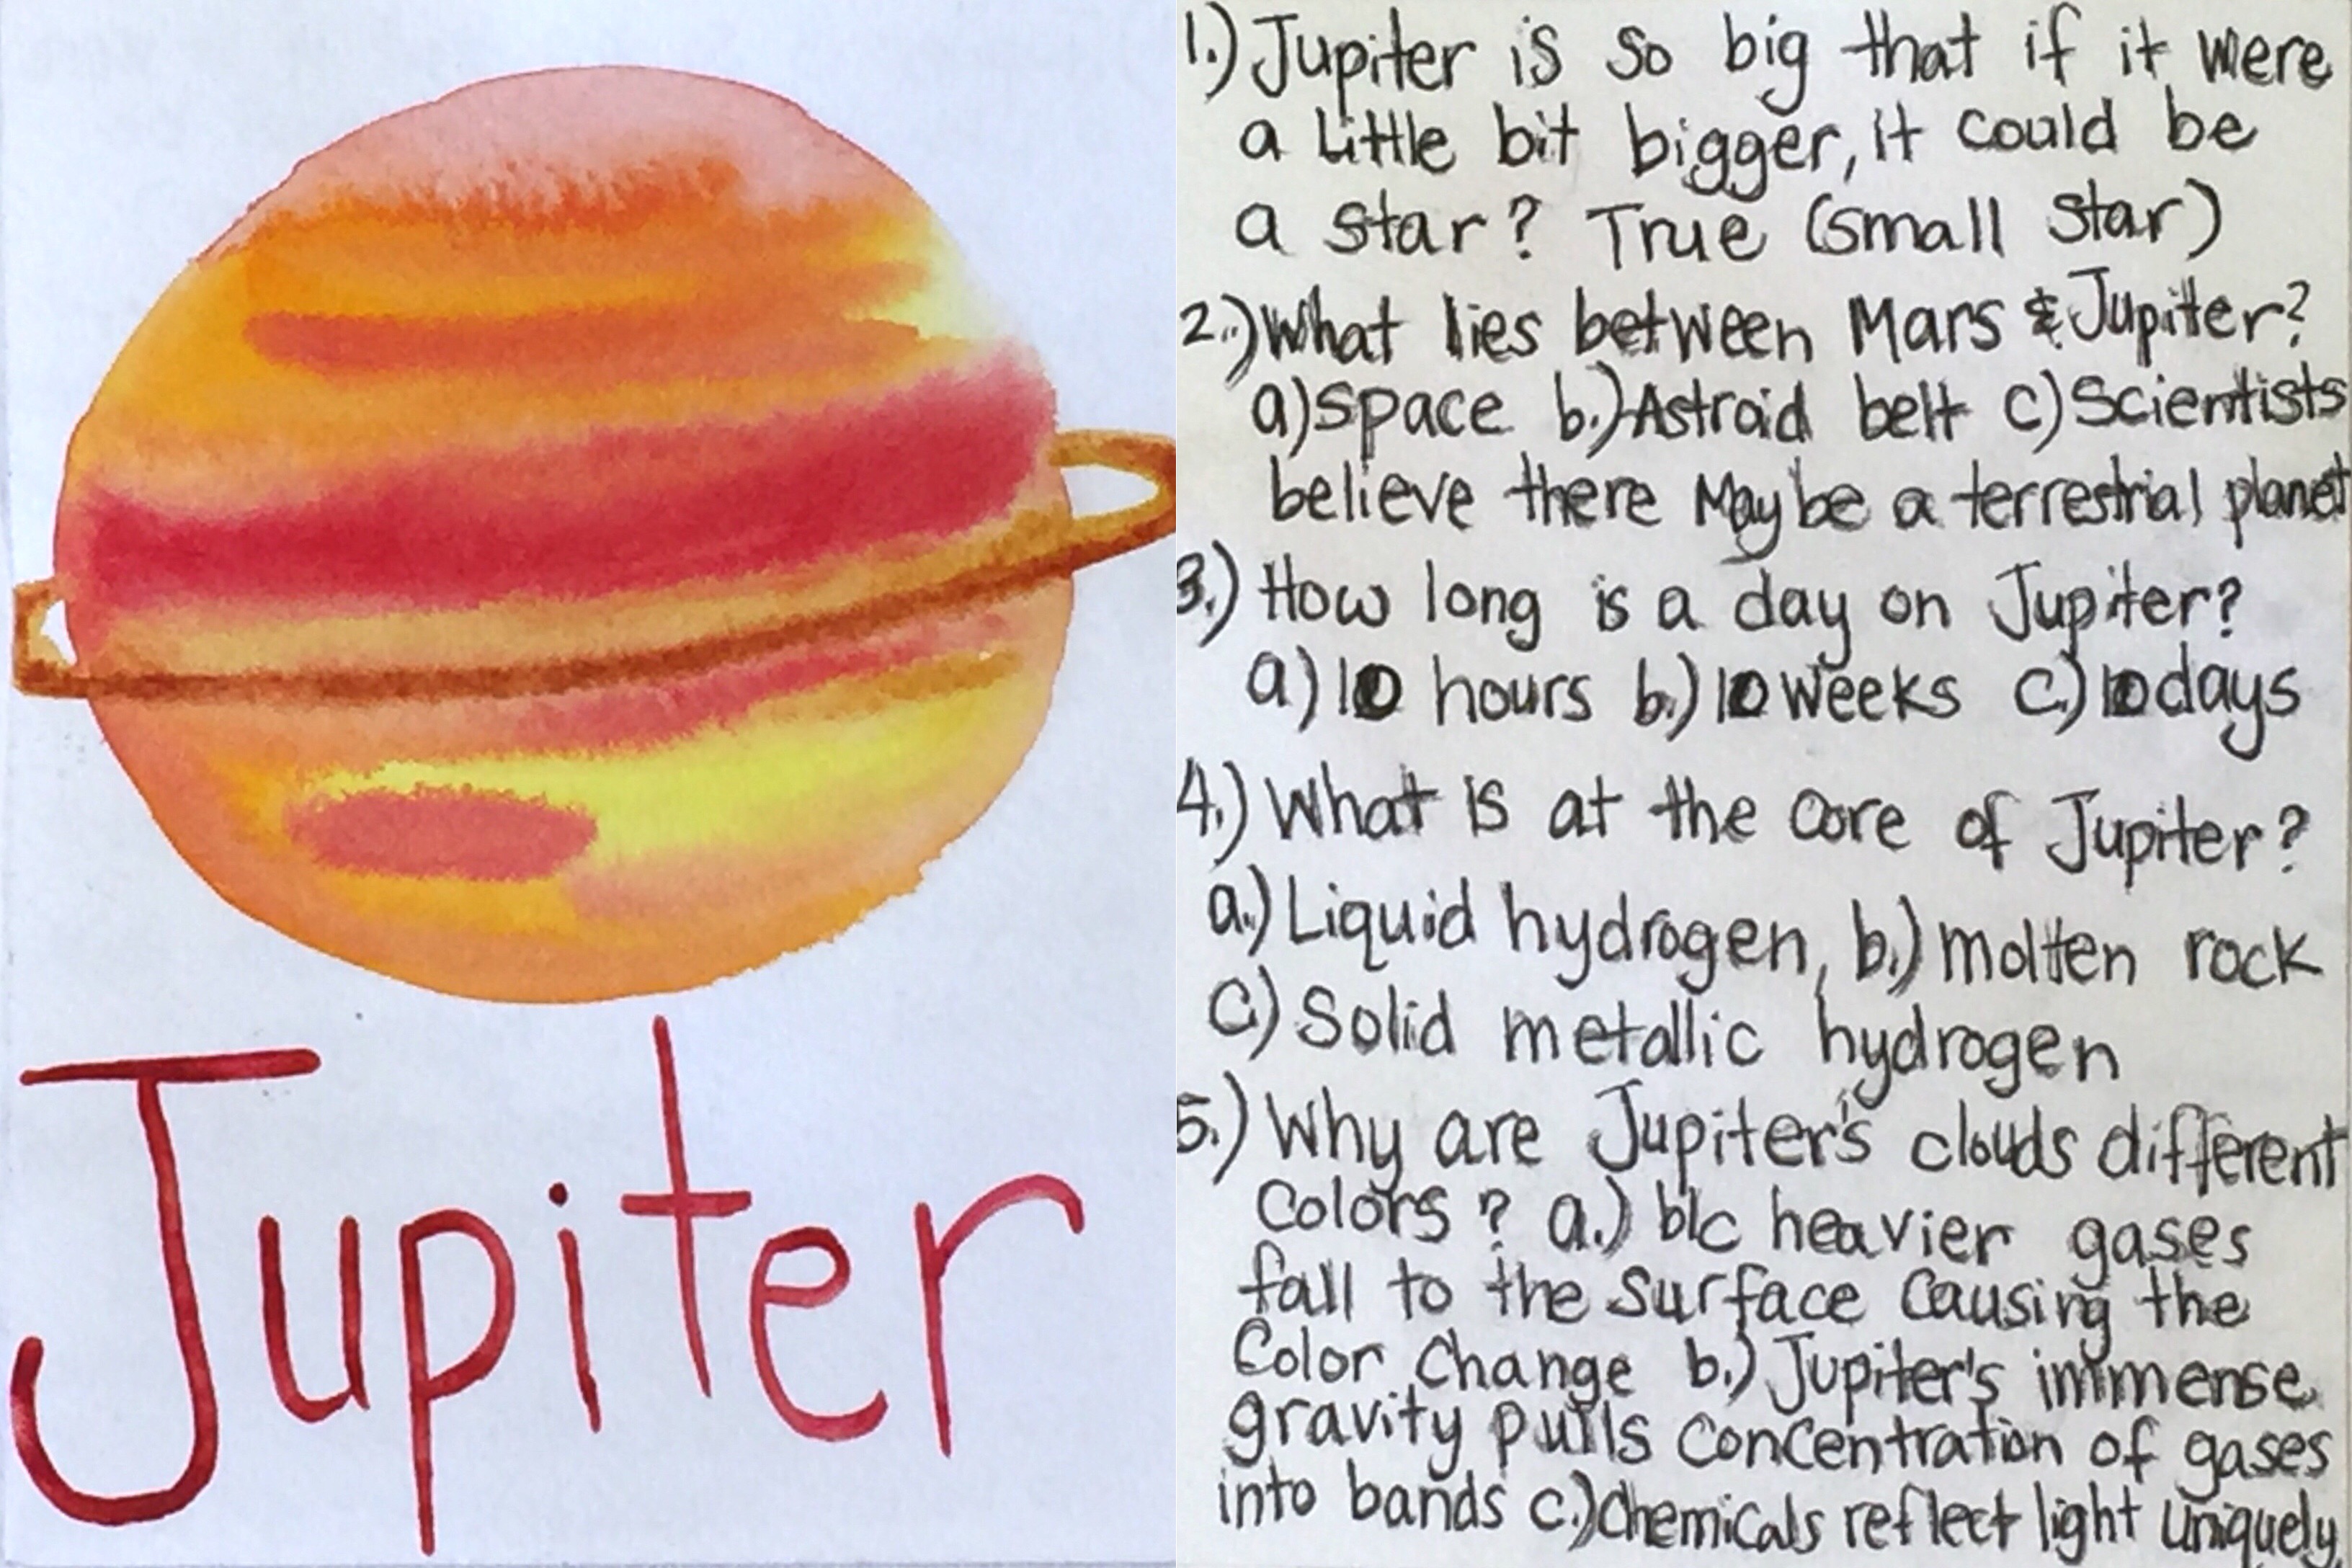 Jupiter
1.) Jupiter is so big that if it were
a little bit bigger, it could be
a star? True (small star)
2.) What lies between Mars & Jupiter?
a) space b.) Astroid belt c) Scientists
believe there may be a terrestrial planet
3.) How long is a day on Jupiter?
a) 10 hours b.) 10 weeks c.) 10 days
4.) What is at the core of Jupiter?
a.) Liquid hydrogen, b.) molten rock
c) Solid metallic hydrogen
5.) Why are Jupiter's clouds different
colors? a.) b/c heavier gases
fall to the surface causing the
color change b.) Jupiter's immense
gravity pulls concentration of gases
into bands c.) Chemicals reflect light uniquely